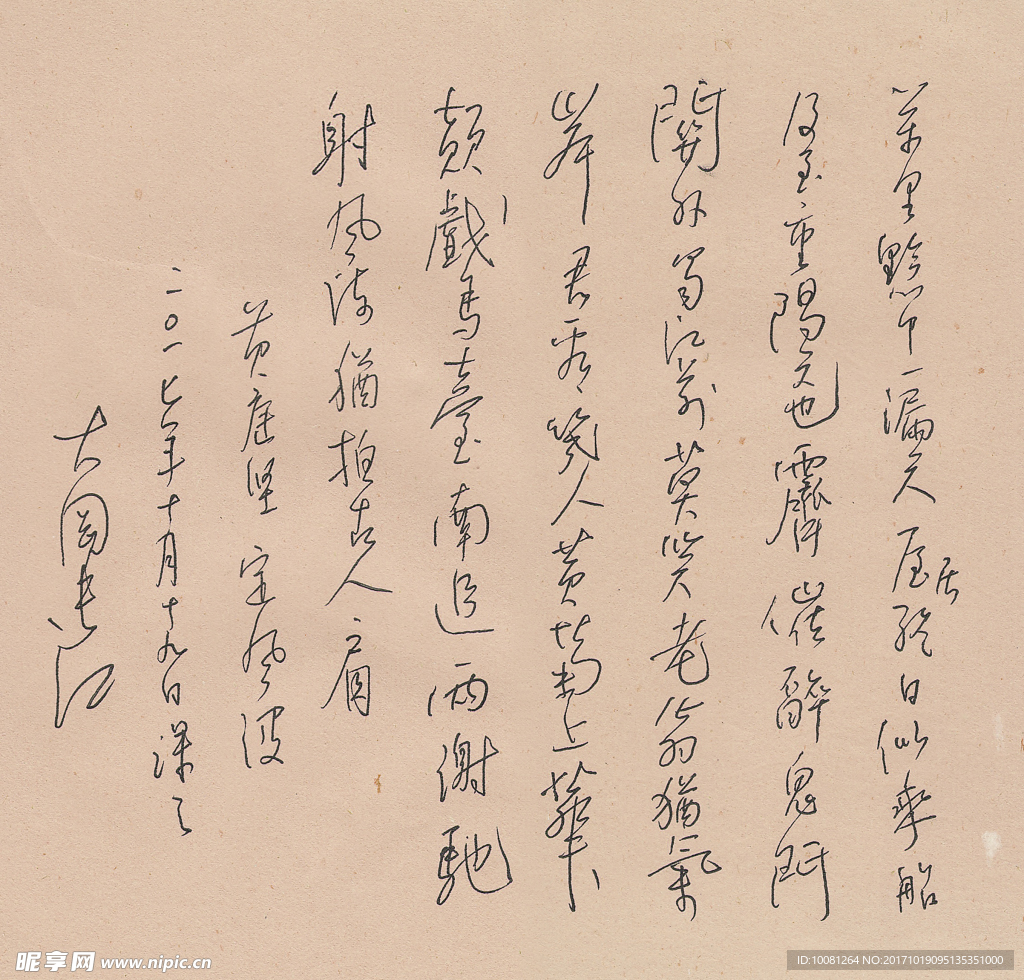 萬里黔中一漏天屋居終日似乘船
及至重陽天也霽催醉鬼門
關外蜀江前莫笑老翁猶氣
岸君看幾人黄菊上華
顛戲馬臺南追兩謝馳
射風流猶拍古人肩
黄庭坚 定風波
二〇一七年十月十九日
大
江
昵享网 www.nipic.cn
ID:10081264 NO:20171019095135351000